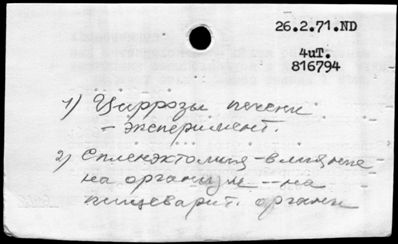 26.2.71.ND
4иТ.
816794
1) Циррозы печени
– эксперимент.
2) Спленэктомия – влияние
на организм – на
пищеварит. органы